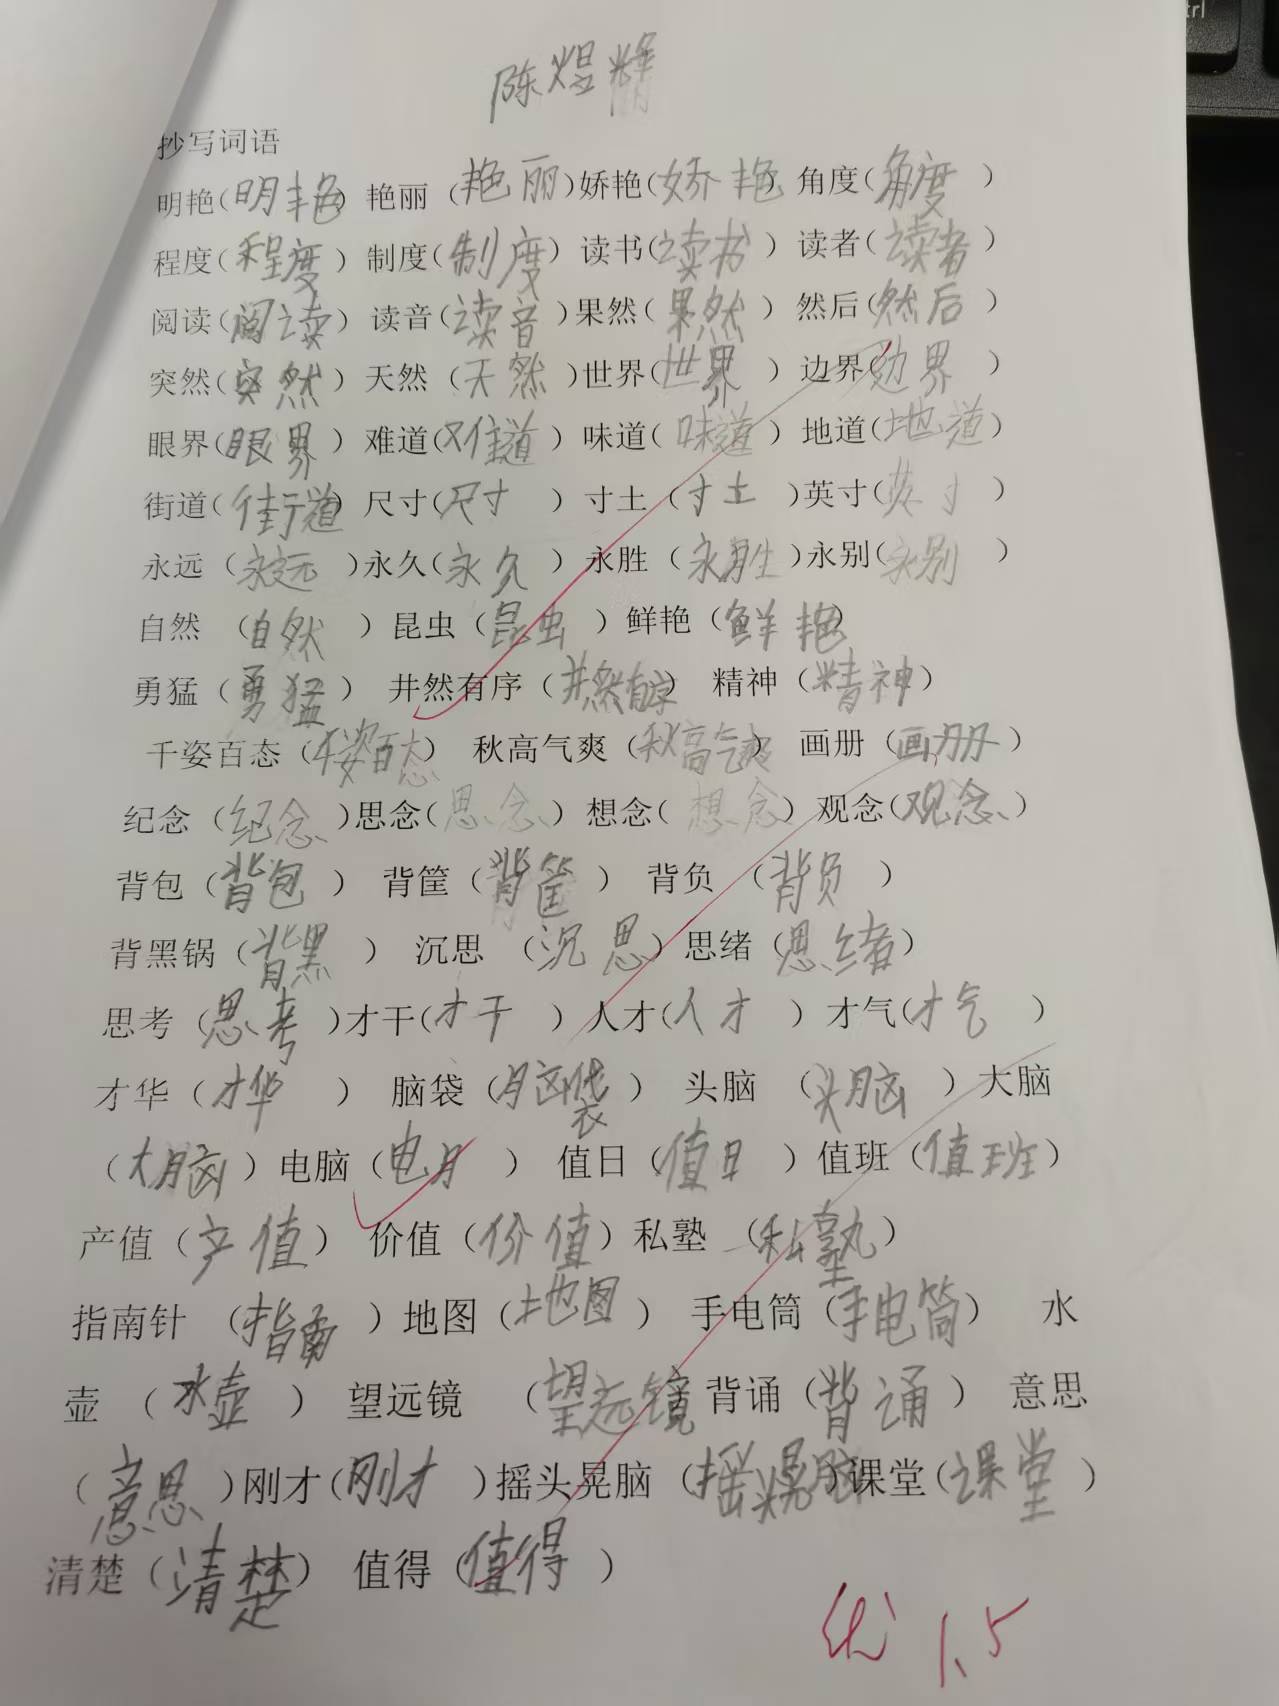 陈煜辉
抄写词语
明艳(明艳) 艳丽（艳丽)娇艳(娇艳) 角度(角度)
程度(程度) 制度(制度) 读书(读书) 读者(读者)
阅读(阅读) 读音(读音)果然(果然) 然后(然后)
突然(突然) 天然（天然)世界(世界) 边界(边界)
眼界(眼界) 难道(难道) 味道(味道) 地道(地道)
街道(街道) 尺寸(尺寸) 寸土（寸土)英寸(英寸)
永远（永远)永久(永久) 永胜（永胜)永别(永别)
自然（自然）昆虫（昆虫）鲜艳（鲜艳)
勇猛（勇猛） 井然有序（井然有序） 精神（精神）
千姿百态（千姿百态） 秋高气爽（秋高气爽） 画册（画册）
纪念（纪念)思念(思念）想念(想念）观念(观念）
背包（背包） 背筐（背筐） 背负（背负）
背黑锅（背黑） 沉思（沉思）思绪（思绪）
思考（思考)才干(才干）人才(人才）才气(才气）
才华（才华） 脑袋（脑袋） 头脑（头脑）大脑
（大脑）电脑（电月） 值日（值日）值班（值班）
产值（产值） 价值（价值）私塾（私塾）
指南针（指南）地图（地图） 手电筒（手电筒） 水
壶（水壶） 望远镜（望远镜 背诵（背诵） 意思
（意思)刚才(刚才)摇头晃脑（摇头晃脑 课堂(课堂）
清楚（清楚） 值得（值得）
优 1.5